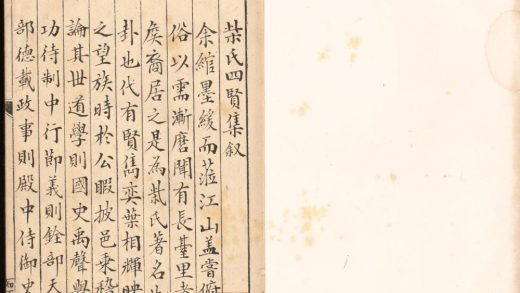 柴氏四賢集叙
余綰墨綬而蒞江山盖嘗俯
俗以需漸磨聞有長臺里者
矦裔居之是為柴氏著名
卦也代有賢雋奕葉相輝映
之望族時於公暇披邑乗
論其世道學則國史禹聲
功待制中行節義則銓部天
部德載政事則殿中侍御史